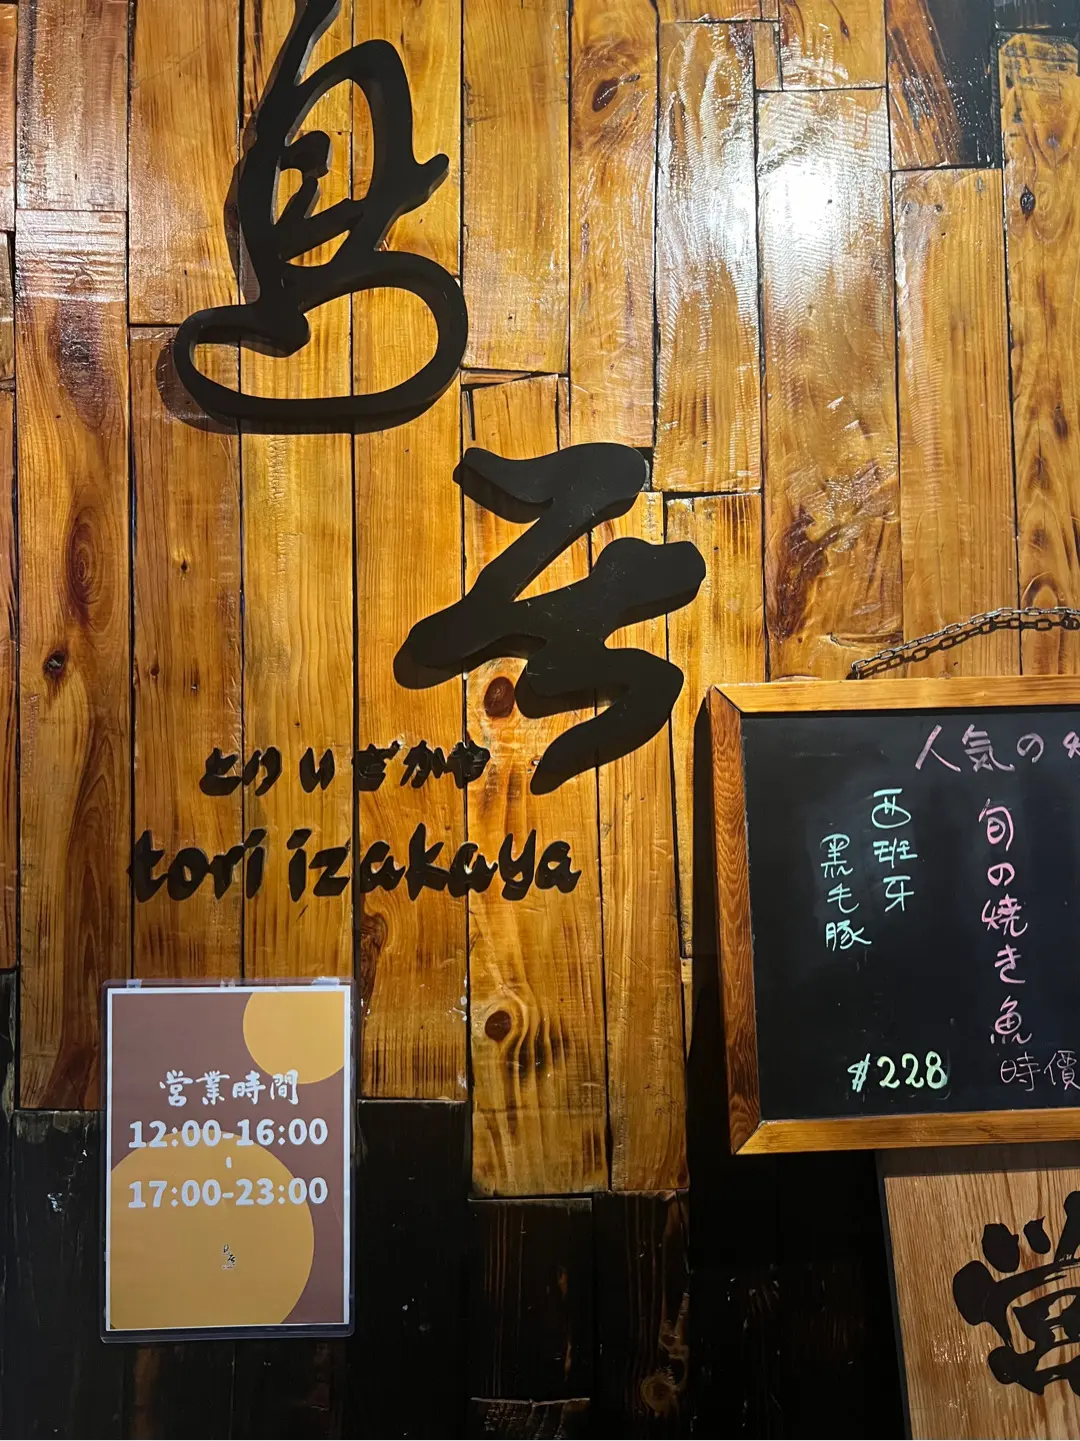 鳥
とりいざかや
tori izakaya
営業時間
12:00-16:00
17:00-23:00
人気の
旬の焼き魚
時價
西班牙
黒毛豚
$228
営